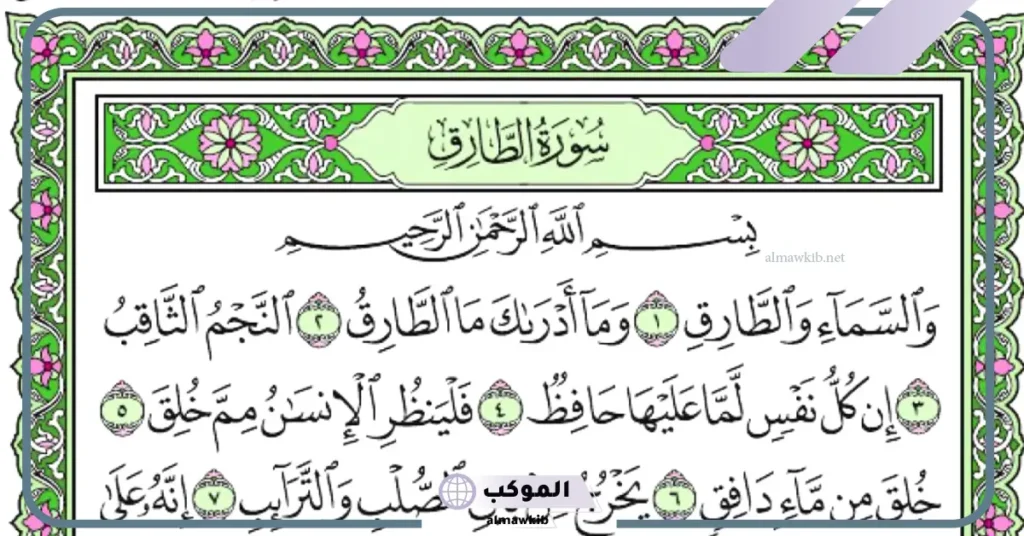 سُورَةُ الطَّارِقِ
بِسْمِ ٱللَّهِ ٱلرَّحْمَٰنِ ٱلرَّحِيمِ
almawkib.net
وَٱلسَّمَآءِ وَٱلطَّارِقِ ١ وَمَآ أَدْرَىٰكَ مَا ٱلطَّارِقُ ٢ ٱلنَّجْمُ ٱلثَّاقِبُ
٣ إِن كُلُّ نَفْسٍ لَّمَّا عَلَيْهَا حَافِظٌ ٤ فَلْيَنظُرِ ٱلْإِنسَٰنُ مِمَّ خُلِقَ ٥
خُلِقَ مِن مَّآءٍ دَافِقٍ ٦ يَخْرُجُ ٱلصُّلْبِ وَٱلتَّرَآئِبِ ٧ إِنَّهُۥ عَلَىٰ
الموكب
almawkib